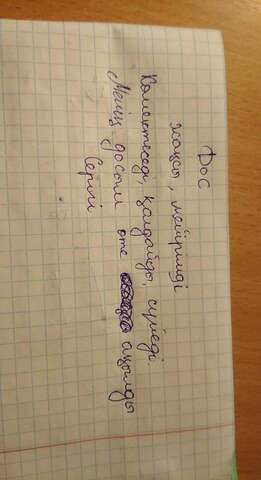 Дос
жақсы, мейірімді
Көмектеседі, қолдайды, сүйеді.
Менің досым оте ақылды
Серігі